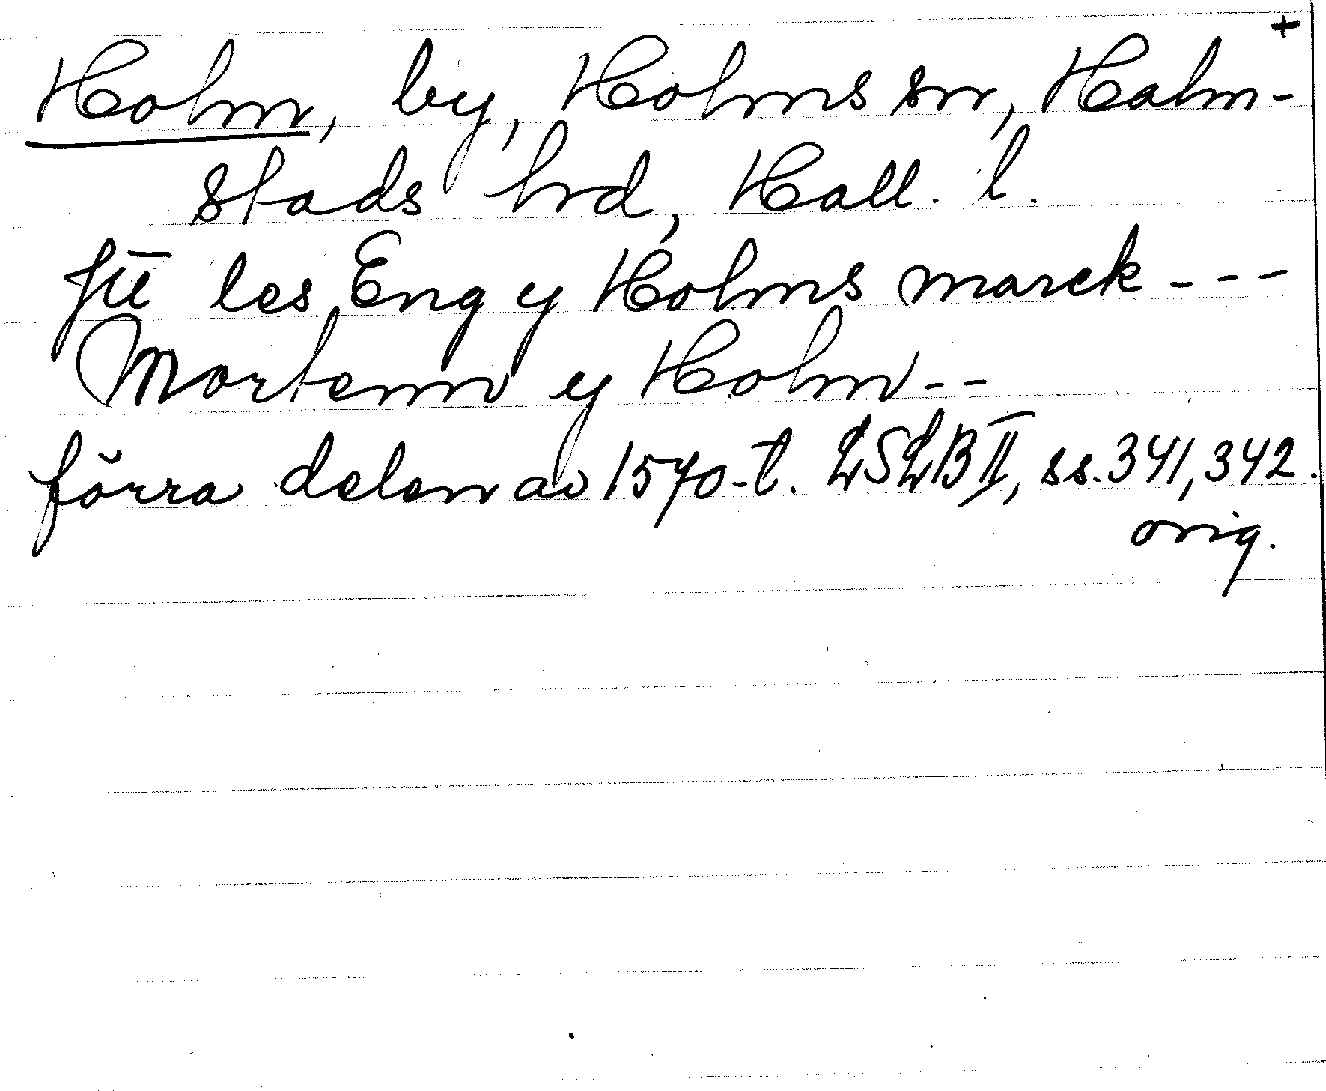 +
Holm, by, Holms sn, Halm-
stads hrd, Hall. l.
les Eng y Holms marck ---
Mortenn y Holm --
förra delen av 1570-t. LSLB II, ss. 341, 342.
orig.